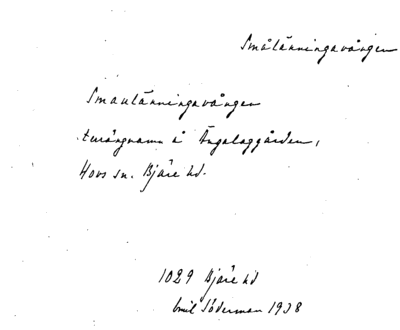 Smålänningavången
Smaulänningavången
terrängnamn å Ängalaggården,
Hovs sn. Bjäre hd.
1029 Bjäre hd
Emil Söderman 1938